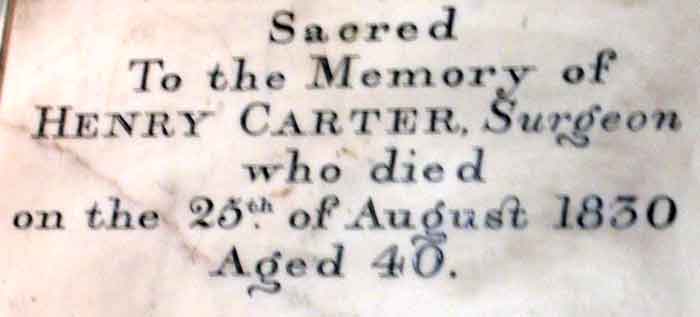 Sacred
To the Memory of
HENRY CARTER, Surgeon
who died
on the 25th. of August 1830
Aged 40.